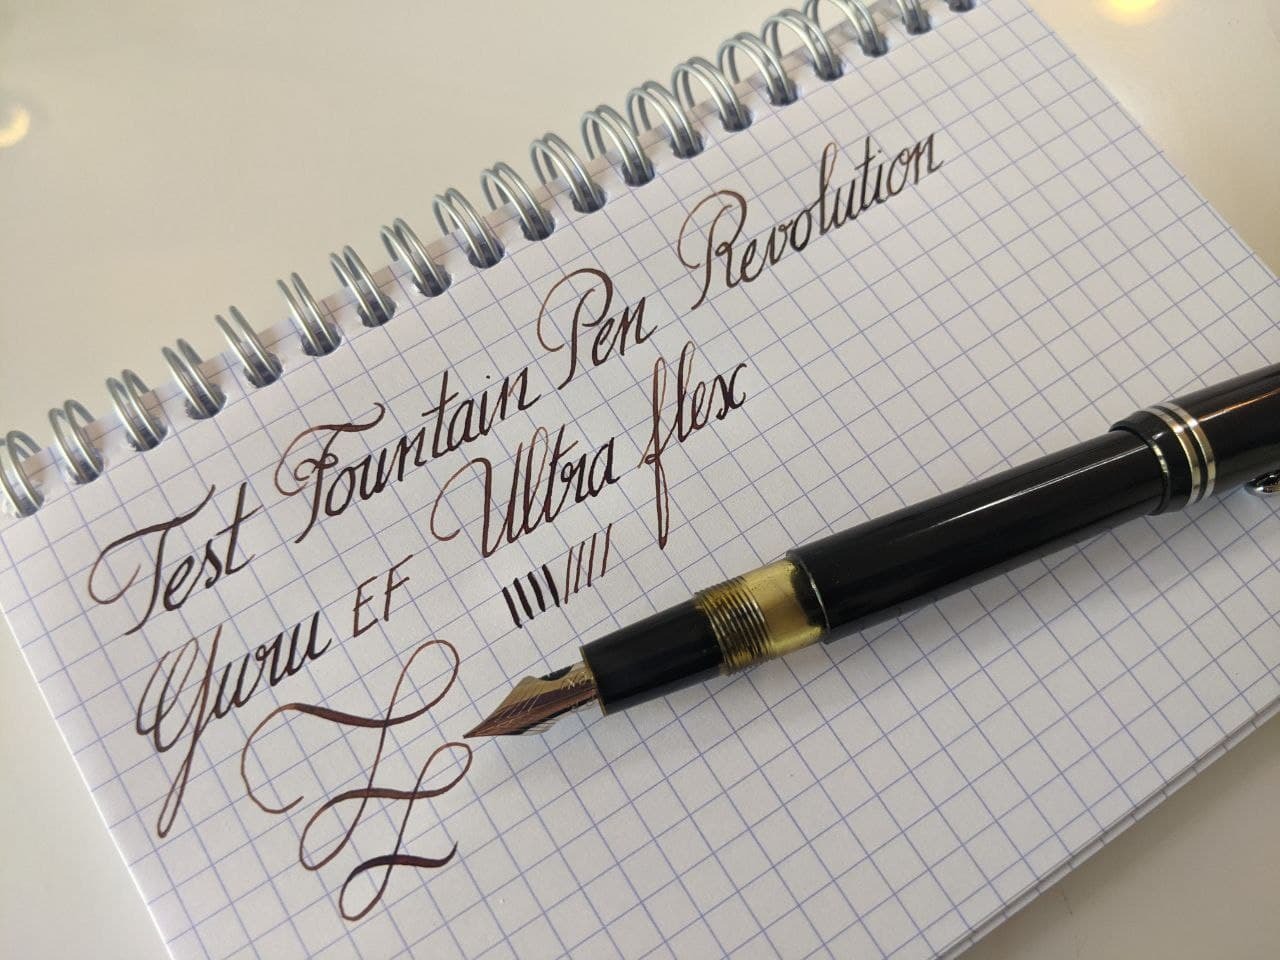 Test Fountain Pen Revolution
Guru EF Ultra flex